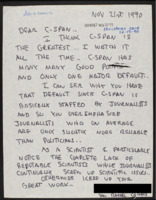 NOV 21st 1990
DEAR C-SPAN..
I THINK C-SPAN IS
THE GREATEST.. I WATCH IT
ALL THE TIME. C-SPAN HAS
MANY MANY GOOD
AND ONLY ONE MAJOR DEFECT..
I CAN SEE WHY YOU HAVE
THAT DEFECT SINCE C-SPAN IS
BASICALLY STAFFED BY JOURNALISTS
AND SO YOU OVER EMPHASIZE
JOURNALISTS WHO ON AVERAGE
ARE ONLY SLIGHTLY MORE RELIABLE
THAN POLITICIANS..
AS A SCIENTIST I PARTICULARLY
NOTICE THE COMPLETE LACK OF
REPUTABLE SCIENTISTS WHILE JOURNALISTS
CONTINUALLY SCREW UP SCIENTIFIC ISSUES.
OTHERWISE KEEP UP THE
GREAT WORK..